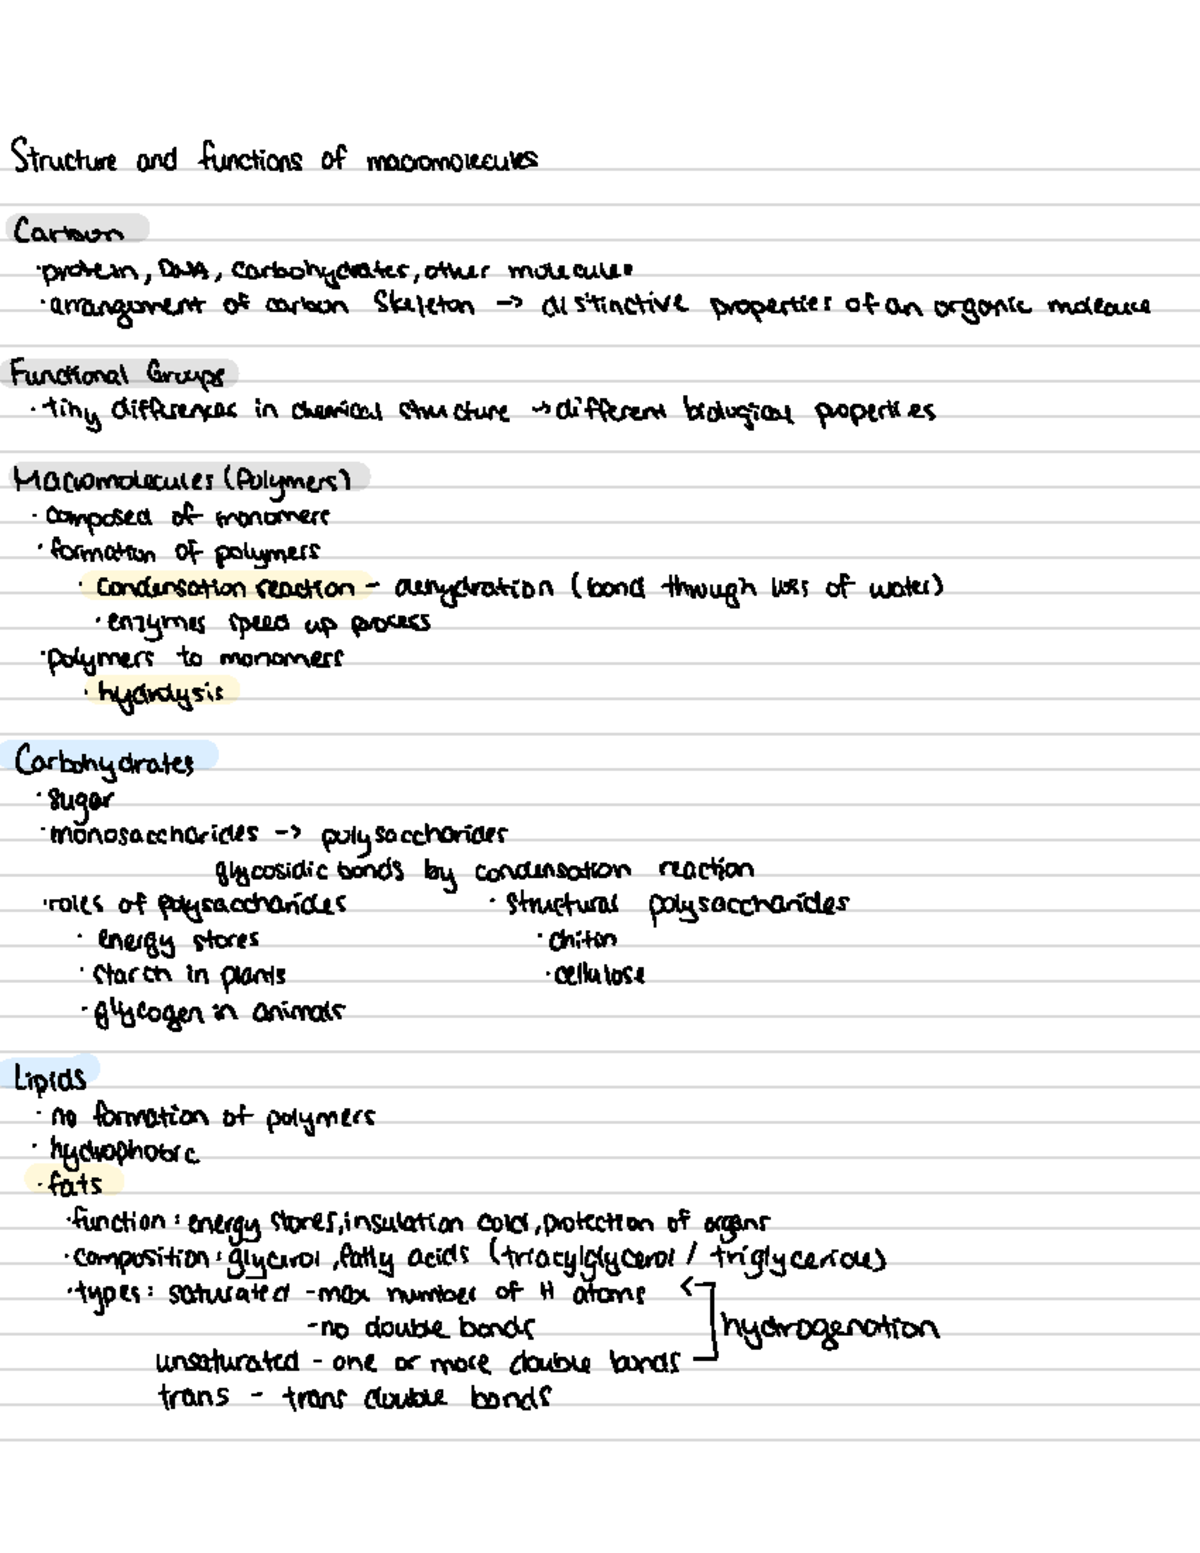 Structure and functions of macromolecules
Carbon
·protein, DNA, carbohydrates, other molecules
·arrangement of carbon skeleton -> distinctive properties of an organic molecule
Functional Groups
·tiny differences in chemical structure -> different biological properties
Macromolecules (Polymers)
·composed of monomers
·formation of polymers
·condensation reaction - dehydration (bond through loss of water)
·enzymes speed up process
·polymers to monomers
·hydrolysis
Carbohydrates
·sugar
·monosaccharides -> polysaccharides
glycosidic bonds by condensation reaction
·roles of polysaccharides ·structural polysaccharides
·energy stores ·chitin
·starch in plants ·cellulose
·glycogen in animals
Lipids
·no formation of polymers
·hydrophobic
·fats
·function: energy stores, insulation cold, protection of organs
·composition: glycerol, fatty acids (triacylglycerol / triglyceride)
·types: saturated -max number of H atoms
-no double bonds hydrogenation
unsaturated - one or more double bonds
trans - trans double bonds